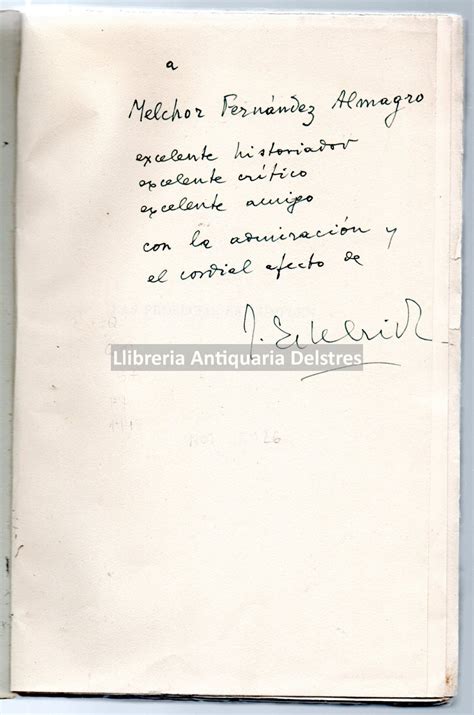 a
Melchor Fernández Almagro
excelente historiador
excelente crítico
excelente amigo
con la admiración y
el cordial afecto de
J. Estelrich
Llibreria Antiquaria Delstres